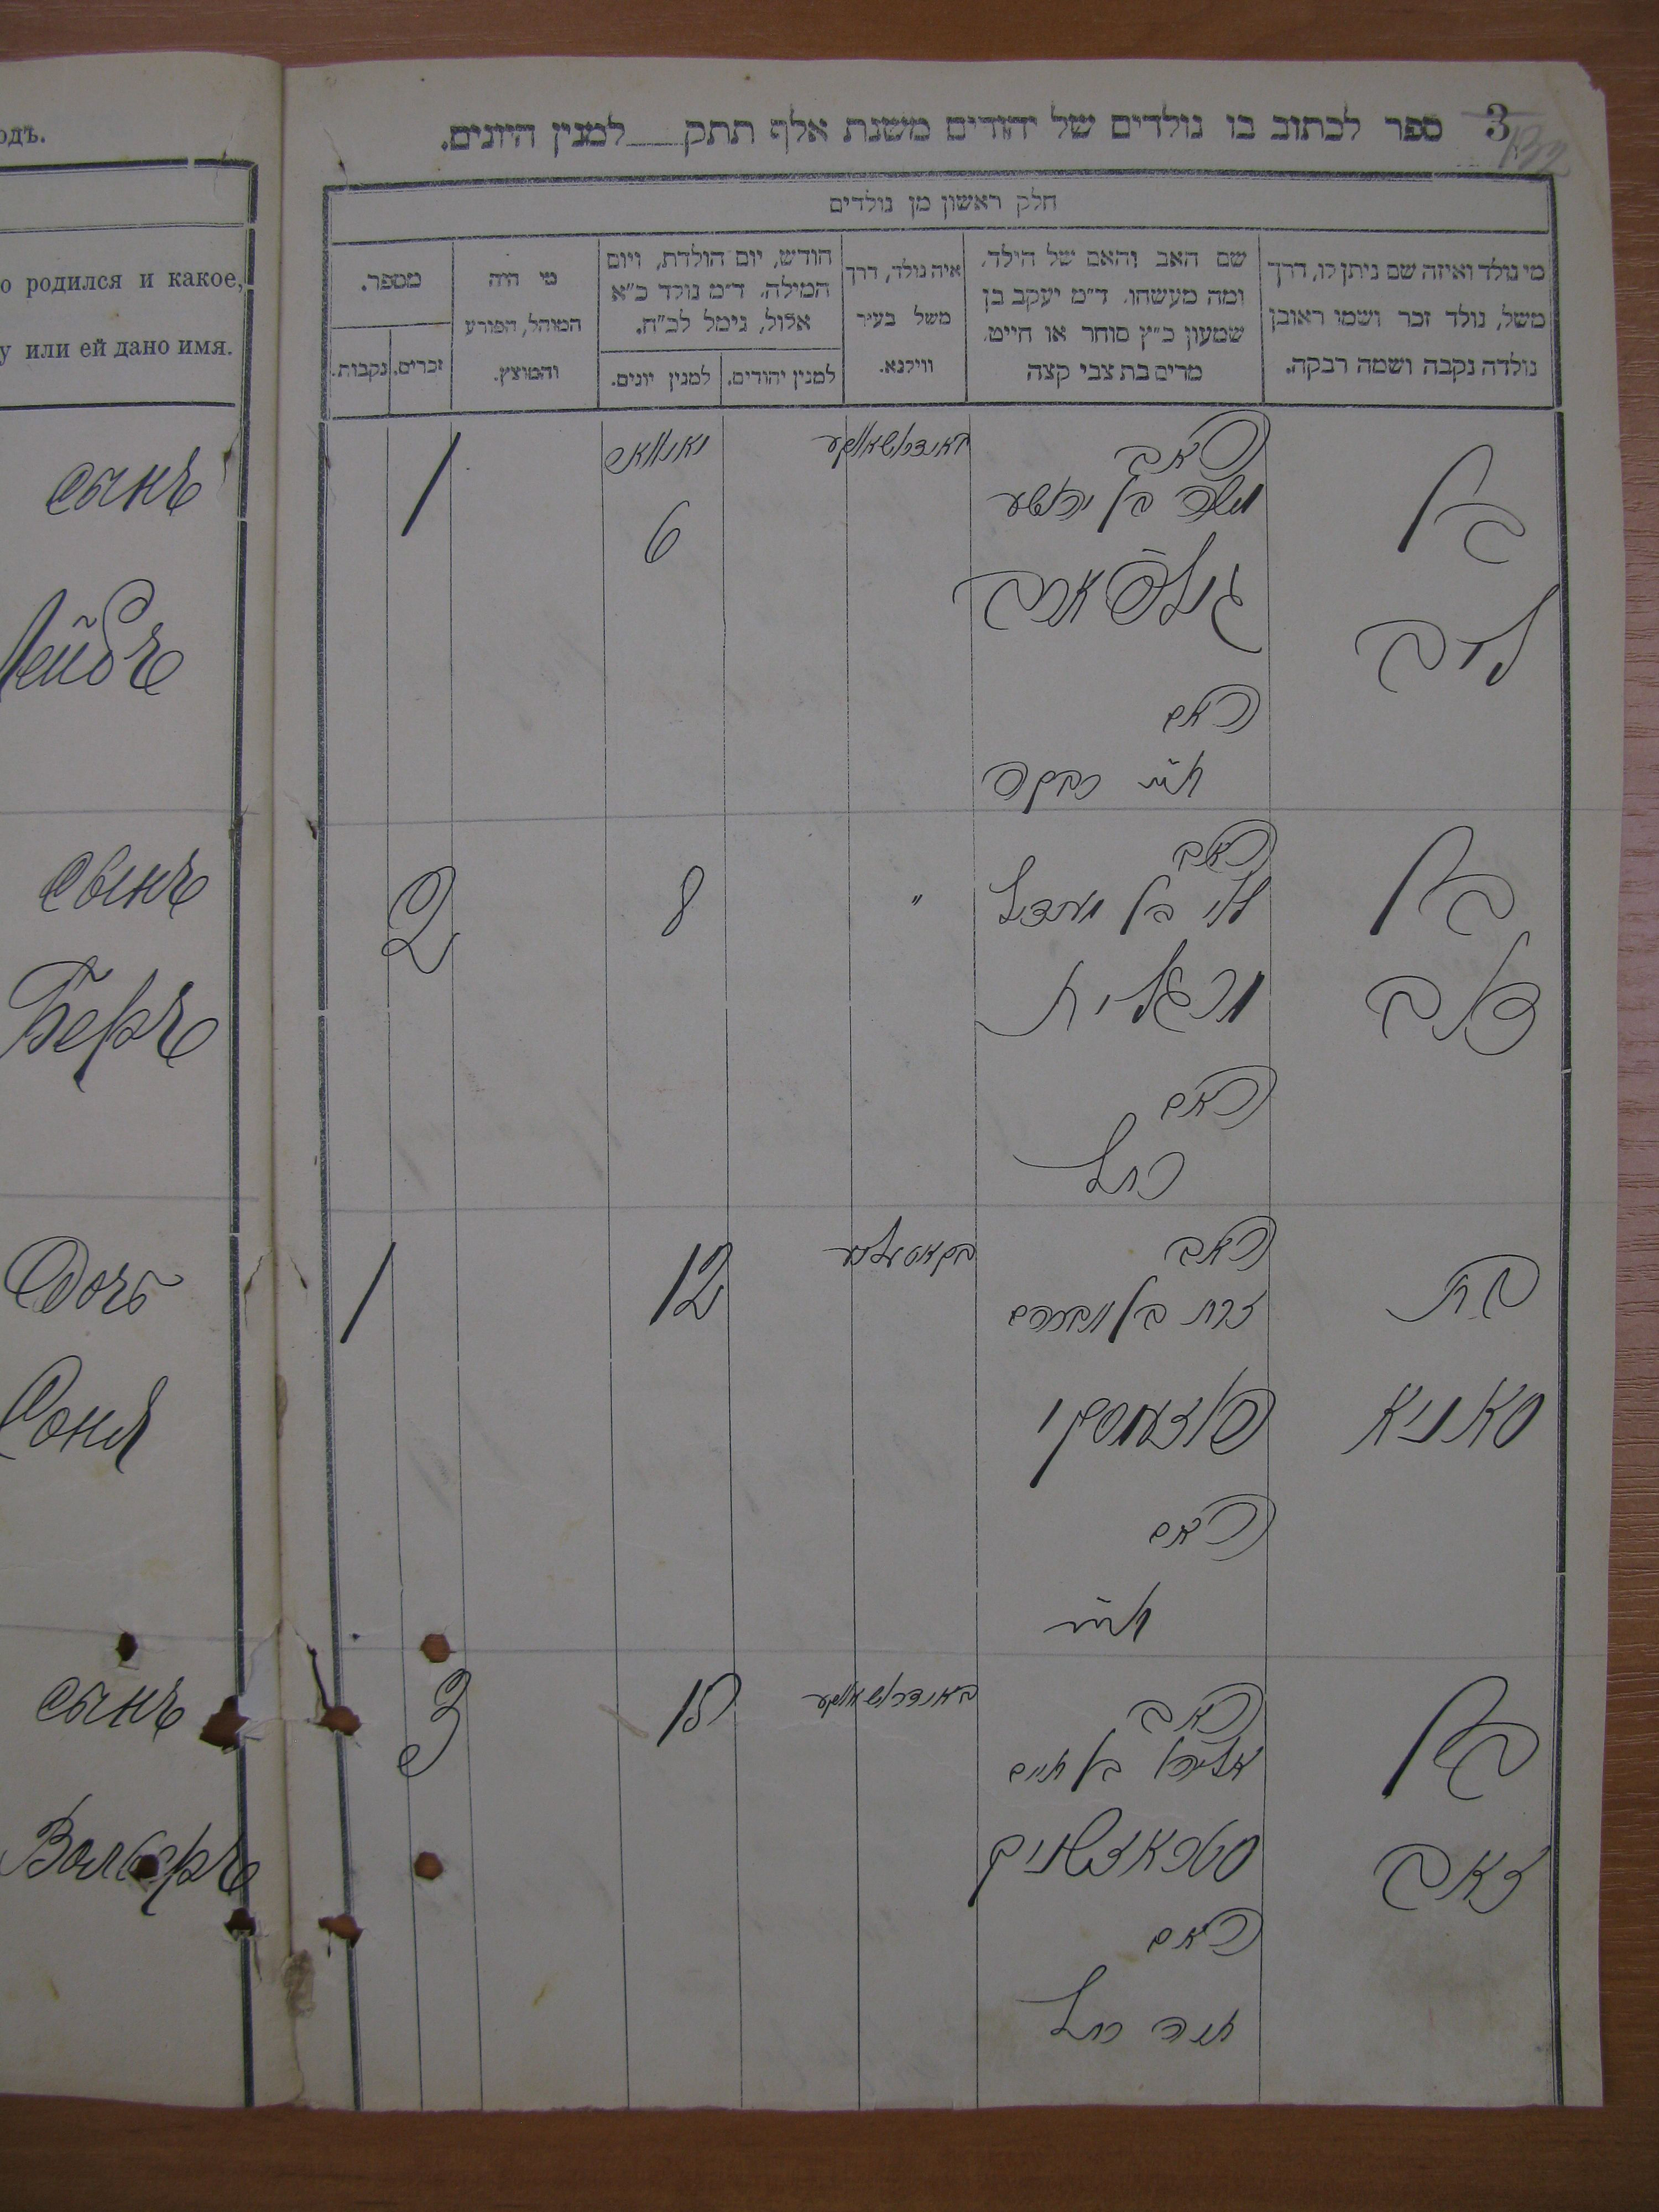 одъ.
о родился и какое,
у или ей дано имя.
сынъ
Лейбъ
сынъ
Беръ
Дочь
Соня
сынъ
Вольфъ
3
132
ספר לכתוב בו נולדים של יהודים משנת אלף תתק למנין היונים.
חלק ראשון מן נולדים
מי נולד ואיזה שם ניתן לו, דרך
משל, נולד זכר ושמו ראובן
נולדה נקבה ושמה רבקה.
שם האב והאם של הילד,
ומה מעשהו. ד״מ יעקב בן
שמעון כ״ץ סוחר או חייט.
מרים בת צבי קצה
איה נולד, דרך
משל בעיר
ווילנא.
חודש, יום הולדת, ויום
המילה. ד״מ נולד כ״א
אלול, נימל לכ״ח.
למנין יהודים.
למנין יונים.
מי היה
המוהל, הפורע
והמוצץ.
מספר.
זכרים.
נקבות.
בן
ליב
האב
משה בן יהושע
גולדפארב
האם
חי׳ רבקה
6
1
בן
דוב
האב
לוי בן מענדיל
מרגלית
האם
רחל
"
8
2
בת
סאניא
האב
האם
חי׳
12
1
בן
זאב
האב
בן חיים
האם
חיה רחל
15
3